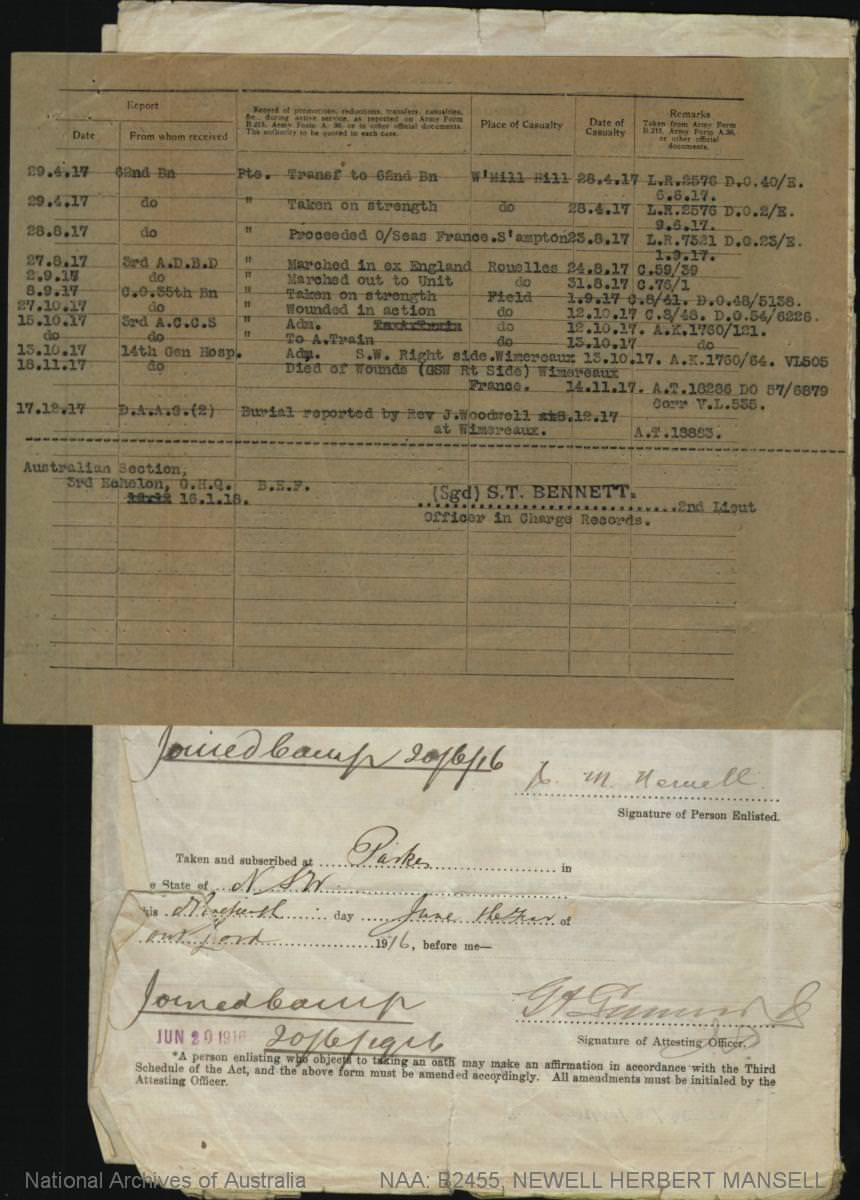 Report
Record of promotions, reductions, transfers, casualties,
&c., during active service, as reported on Army Form
B.213, Army Form A. 36, or in other official documents.
The authority to be quoted in each case.
Place of Casualty
Date of
Casualty
Remarks
Taken from Army Form
B.213, Army Form A.36,
or other official
documents.
Date
From whom received
29.4.17 62nd Bn Pte. Transf to 62nd Bn W'Mill Hill 28.4.17 L.R.2576 D.O.40/E.
6.6.17.
29.4.17 do " Taken on strength do 28.4.17 L.R.2576 D.O.2/E.
9.6.17.
28.8.17 do " Proceeded O/Seas France.S'ampton 23.8.17 L.R.7321 D.O.23/E.
1.9.17.
27.8.17 3rd A.D.B.D " Marched in ex England Rouelles 24.8.17 C.59/39
2.9.17 do " Marched out to Unit do 31.8.17 C.76/1
8.9.17 C.O.35th Bn " Taken on strength Field 1.9.17 C.8/41. D.O.48/5138.
27.10.17 do " Wounded in action do 12.10.17 C.8/48. D.O.54/6226.
15.10.17 3rd A.C.C.S " Adm. do 12.10.17. A.K.1760/121.
do do " To A.Train do 13.10.17 do
13.10.17 14th Gen Hosp. Adm. S.W. Right side.Wimereaux 13.10.17. A.K.1760/64. VL505
18.11.17 do Died of Wounds (GSW Rt Side) Wimereaux
France. 14.11.17. A.T.18286 DO 57/6879
Corr V.L.535.
17.12.17 D.A.A.G.(2) Burial reported by Rev J.Woodwell 8.12.17
at Wimereaux. A.T.18883.
Australian Section,
3rd Echelon, G.H.Q. B.E.F.
16.1.18.
(Sgd) S.T. BENNETT.
2nd Lieut
Officer in Charge Records.
Joined Camp 20/6/16
H. M. Newell.
Signature of Person Enlisted.
Taken and subscribed at Parkes in
e State of N S W
his day June of
our Lord 1916, before me—
Joined Camp
JUN 20 1916 20/6/1916
Signature of Attesting Officer.
*A person enlisting who objects to taking an oath may make an affirmation in accordance with the Third
Schedule of the Act, and the above form must be amended accordingly. All amendments must be initialed by the
Attesting Officer.
National Archives of Australia NAA: B2455, NEWELL HERBERT MANSELL